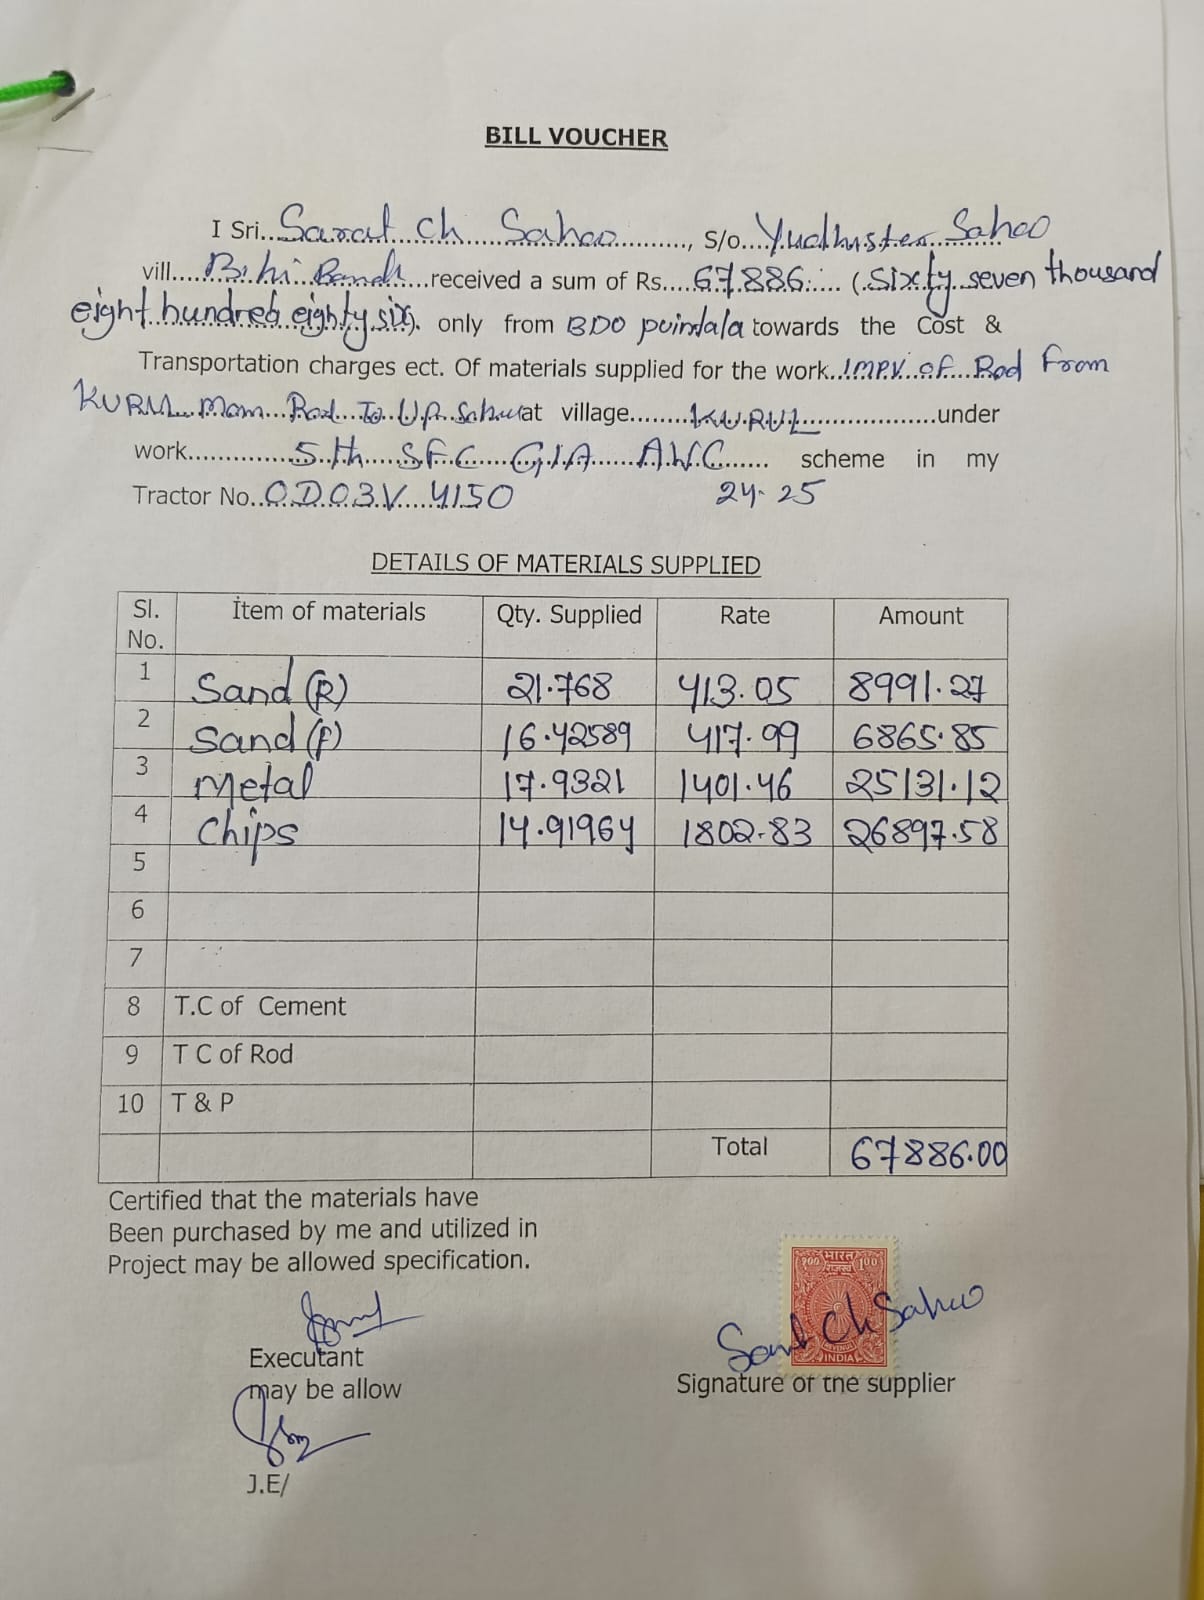 BILL VOUCHER
I Sri..Sarat ch Sahoo.........., S/o....Yudhister Sahoo
vill....Bihi Bandh...received a sum of Rs....67886/.... (.Sixty seven thousand
eight hundred eighty six). only from BDO puintala towards the Cost &
Transportation charges ect. Of materials supplied for the work..IMPV of Rod From
KURUL Mam Rod To UP School at village........KURUL..................under
work...............5th SFC GIA AWC...... scheme in my
Tractor No..OD03V 4150 24-25
DETAILS OF MATERIALS SUPPLIED
Sl. No. Item of materials Qty. Supplied Rate Amount
1 Sand (R) 21.768 413.05 8991.27
2 Sand (F) 16.42589 417.99 6865.85
3 Metal 17.9321 1401.46 25131.12
4 Chips 14.91964 1802.83 26897.58
5
6
7
8 T.C of Cement
9 T C of Rod
10 T & P
Total 67886.00
Certified that the materials have
Been purchased by me and utilized in
Project may be allowed specification.
भारत
राजस्व
१०० 100
REVENUE
INDIA
Sarat Ch Sahoo
Executant
Signature of the supplier
may be allow
J.E/